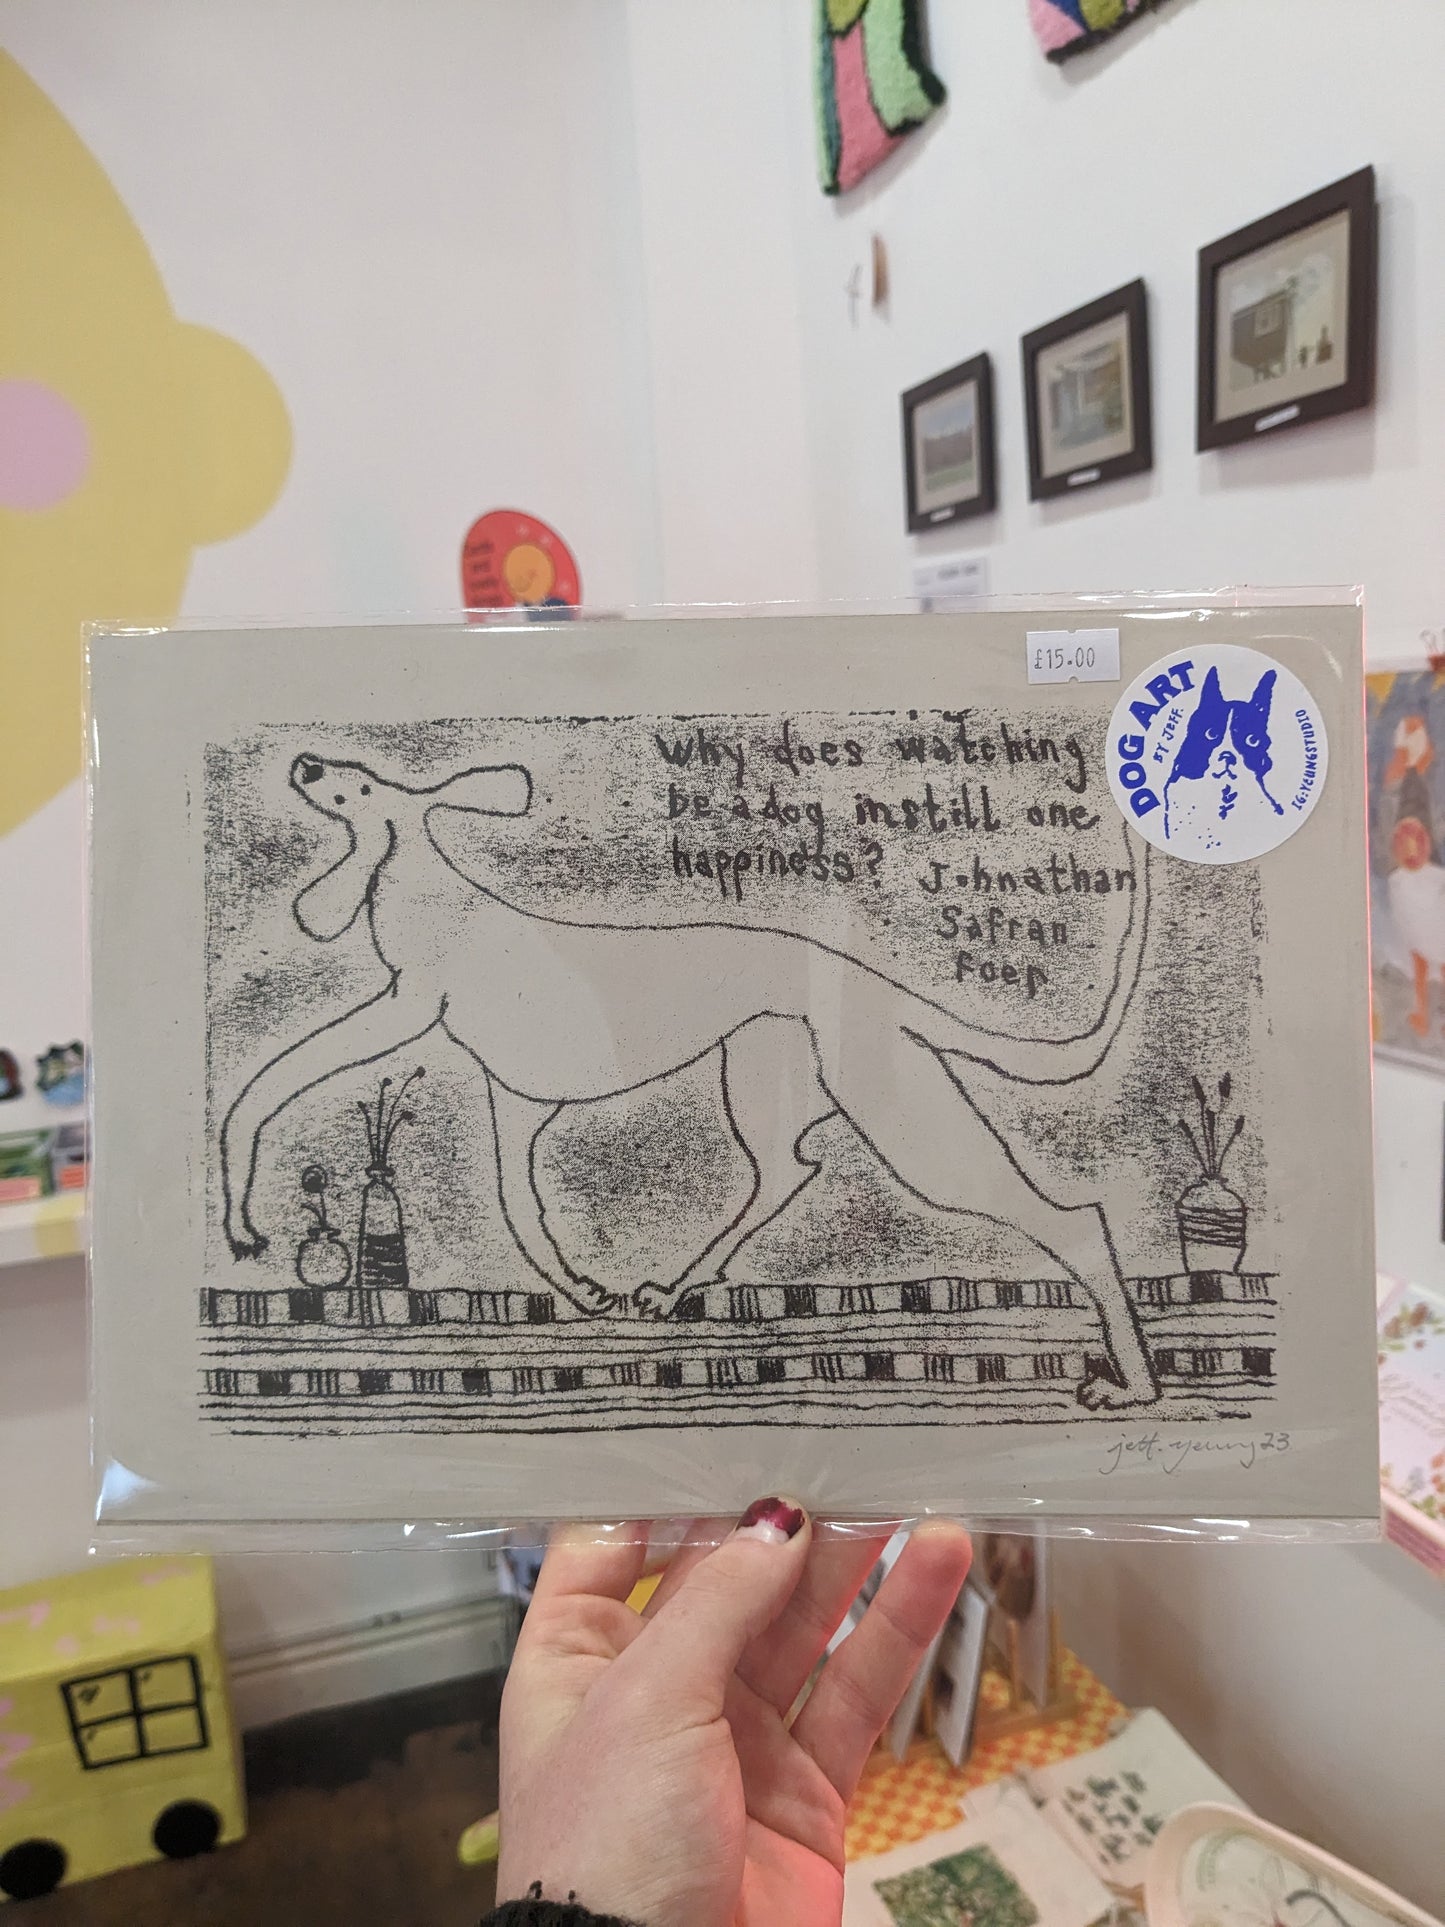 £15.00
DOG ART
BY JEFF.
IG:YEUNGSTUDIO
Why does watching
be a dog instill one
happiness?
Johnathan
Safran
Foer
jeff. yeung 23